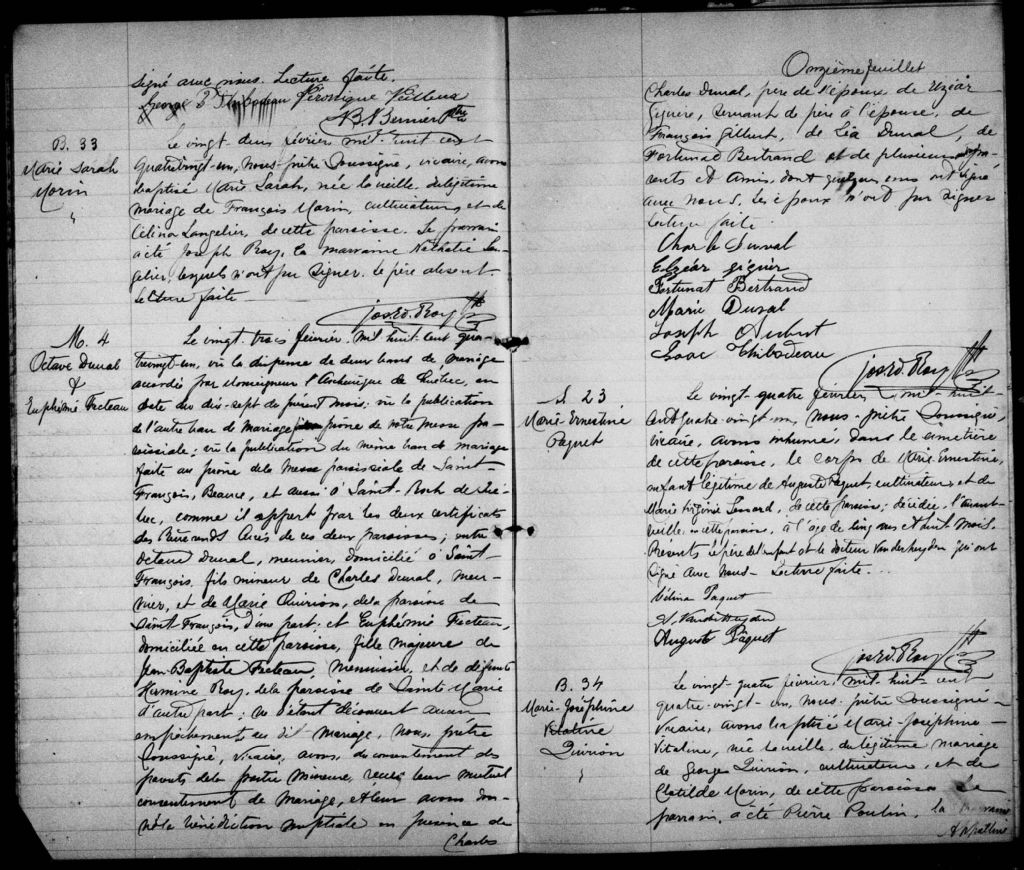 signé avec nous. Lecture faite.
George T Thibodeau Véronique Veilleux
N.B. Bernier Ptre
B. 33
Marie Sarah
Morin
Le vingt-deux février mil-huit cent
quatrevingt-un, nous prêtre soussigné, vicaire, avons
baptisé Marie Sarah, née la veille du légitime
mariage de François Morin, cultivateur, et de
Célina Langelier, de cette paroisse. Le parrain
a été Joseph Roy, la marraine Nathalie Lan-
gelier, lesquels n'ont pu signer. Le père absent.
Lecture faite.
Jos. Ed. Roy Ptre
M. 4
Octave Duval
&
Euphémie Fecteau
Le vingt-trois février, mil huit cent qua-
trevingt-un, vu la dispense de deux bans de mariage
accordée par Monseigneur l'Archevêque de Québec, en
date du dix-sept du présent mois; vu la publication
de l'autre ban de mariage au prône de notre messe pa-
roissiale; vu la publication du même ban de mariage
faite au prône de la messe paroissiale de Saint-
François, Beauce, et aussi à Saint-Roch de Qué-
bec, comme il appert par les deux certificats
des Révérends Curés de ces deux paroisses; entre
Octave Duval, meunier, domicilié à Saint-
François, fils mineur de Charles Duval, meu-
nier, et de Marie Quirion, de la paroisse de
Saint François, d'une part; et Euphémie Fecteau,
domiciliée en cette paroisse, fille majeure de
Jean-Baptiste Fecteau, menuisier, et de défunte
Hermine Roy, de la paroisse de Sainte Marie
d'autre part; ne s'étant découvert aucun
empêchement au dit mariage, nous, prêtre
soussigné, vicaire, avons, du consentement des
parents de la partie mineure, reçu leur mutuel
consentement de mariage, et leur avons don-
né la bénédiction nuptiale en présence de
Charles
Onzième feuillet
Charles Duval, père de l'époux, de Elzéar
Giguère, servant de père à l'épouse, de
François Gilbert, de Léa Duval, de
Fortunat Bertrand et de plusieurs pa-
rents et amis, dont quelques uns ont signé
avec nous. Les époux n'ont pu signer
Lecture faite.
Charle Durval
Elzéar giguer
Fortunat Bertrand
Marie Duval
Joseph Aubert
Isaac Thibodeau
Jos. Ed. Roy Ptre
S. 23
Marie-Ernestine
Paquet
Le vingt-quatre février, mil-huit-
cent quatre-vingt-un, nous, prêtre soussigné,
vicaire, avons inhumé, dans le cimetière
de cette paroisse, le corps de Marie-Ernestine,
enfant légitime de Auguste Paquet, cultivateur, et de
Marie Virginie Lessard, de cette paroisse; décédée l'avant-
veille en cette paroisse, à l'âge de cinq ans et huit mois.
Présents le père de l'enfant et le docteur Vanderheyden qui ont
signé avec nous. Lecture faite...
Vélina Paquet
A. Vanderheyden
Auguste Paquet
Jos. Ed. Roy Ptre
B. 34
Marie-Joséphine
Vitaline
Quirion
Le vingt-quatre février, mil-huit-cent
quatre-vingt-un, nous prêtre soussigné
vicaire, avons baptisé Marie-Joséphine-
Vitaline, née la veille, du légitime mariage
de George Quirion, cultivateur, et de
Clatilde Morin, de cette paroisse. Le
parrain, a été Pierre Poulin, la marraine
Appolline